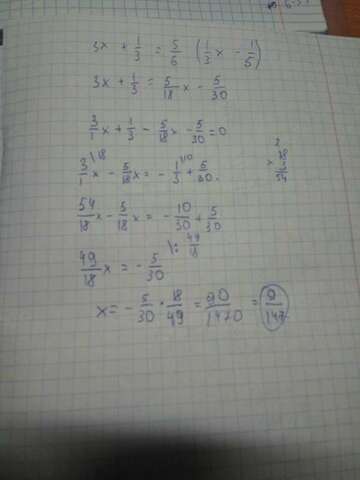 3x + 1/3 = 5/6 (1/3 x - 1/5)
3x + 1/3 = 5/18 x - 5/30
3/1 x + 1/3 - 5/18 x - 5/30 = 0
3/1 \18 x - 5/18 x = - 1/3 \10 + 5/30.
54/18 x - 5/18 x = - 10/30 + 5/30
49/18 x = - 5/30 \: 49/18
x = - 5/30 · 18/49 = 90/1470 = 9/147
2
18
× 3
54